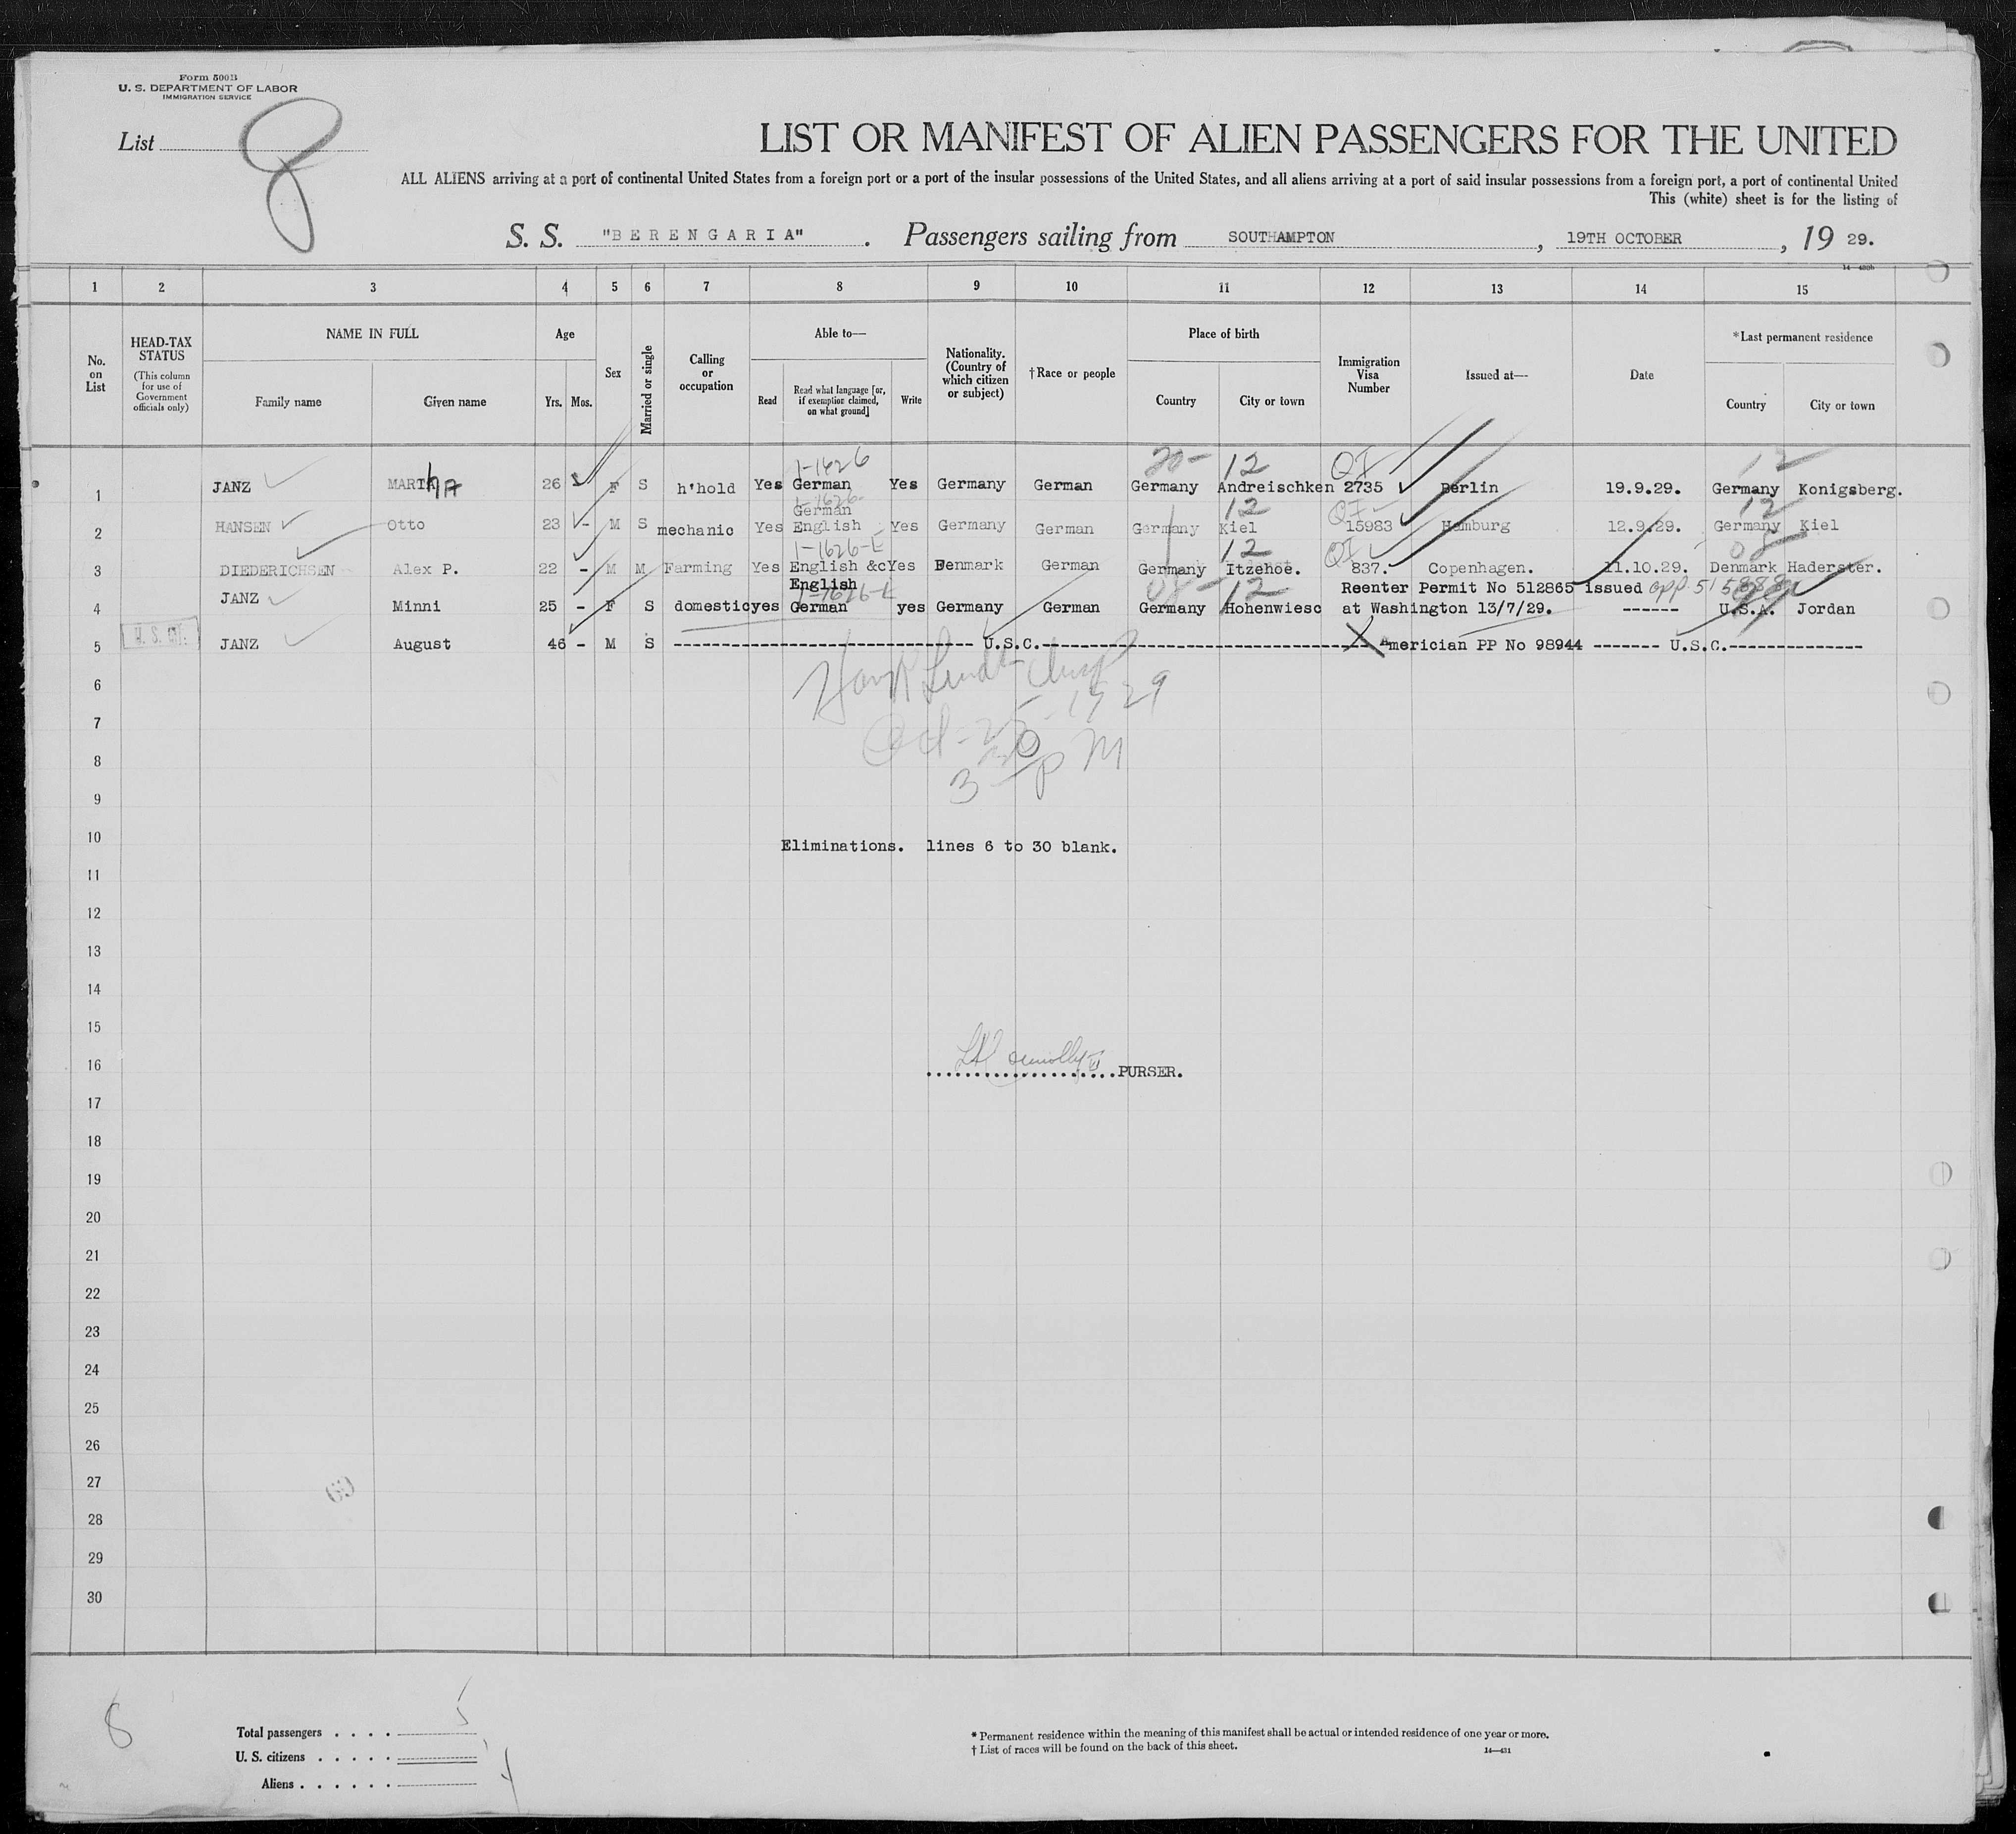 Form 500B
U. S. DEPARTMENT OF LABOR
IMMIGRATION SERVICE
List 8
LIST OR MANIFEST OF ALIEN PASSENGERS FOR THE UNITED
ALL ALIENS arriving at a port of continental United States from a foreign port or a port of the insular possessions of the United States, and all aliens arriving at a port of said insular possessions from a foreign port, a port of continental United
This (white) sheet is for the listing of
S. S. "BERENGARIA". Passengers sailing from SOUTHAMPTON, 19TH OCTOBER, 19 29.
1 2 3 4 5 6 7 8 9 10 11 12 13 14 15
No. on List
HEAD-TAX STATUS
(This column for use of Government officials only)
NAME IN FULL
Family name Given name
Age
Yrs. Mos.
Sex
Married or single
Calling or occupation
Able to—
Read
Read what language [or, if exemption claimed, on what ground]
Write
Nationality. (Country of which citizen or subject)
†Race or people
Place of birth
Country City or town
Immigration Visa Number
Issued at—
Date
*Last permanent residence
Country City or town
1-1626 20- 12 QI 12
1 JANZ MARThA 26 F S h'hold Yes German Yes Germany German Germany Andreischken 2735 Berlin 19.9.29. Germany Konigsberg.
1-1626- 12 QI 12
German
2 HANSEN Otto 23 - M S mechanic Yes English Yes Germany German Germany Kiel 15983 Hamburg 12.9.29. Germany Kiel
1-1626-E 12 QI 08
3 DIEDERICHSEN Alex P. 22 - M M Farming Yes English &c Yes Denmark German Germany Itzehoe. 837. Copenhagen. 11.10.29. Denmark Haderster.
English Reenter Permit No 512865 issued
1-1626-E 08- 12
4 JANZ Minni 25 - F S domestic yes German yes Germany German Germany Hohenwiese at Washington 13/7/29. ------ U.S.A. Jordan
5 U. S. CIT. JANZ August 46 - M S ------ U.S.C. ------ Americian PP No 98944 ------- U.S.C.--------------
6
Oct-25-1929
7
8
3 PM
9
10
Eliminations. lines 6 to 30 blank.
11
12
13
14
15
16
....................PURSER.
17
18
19
20
21
22
23
24
25
26
27
28
29
30
8
Total passengers . . . . 5
U. S. citizens . . . . . 1
Aliens . . . . . . 4
* Permanent residence within the meaning of this manifest shall be actual or intended residence of one year or more.
† List of races will be found on the back of this sheet.
14—431